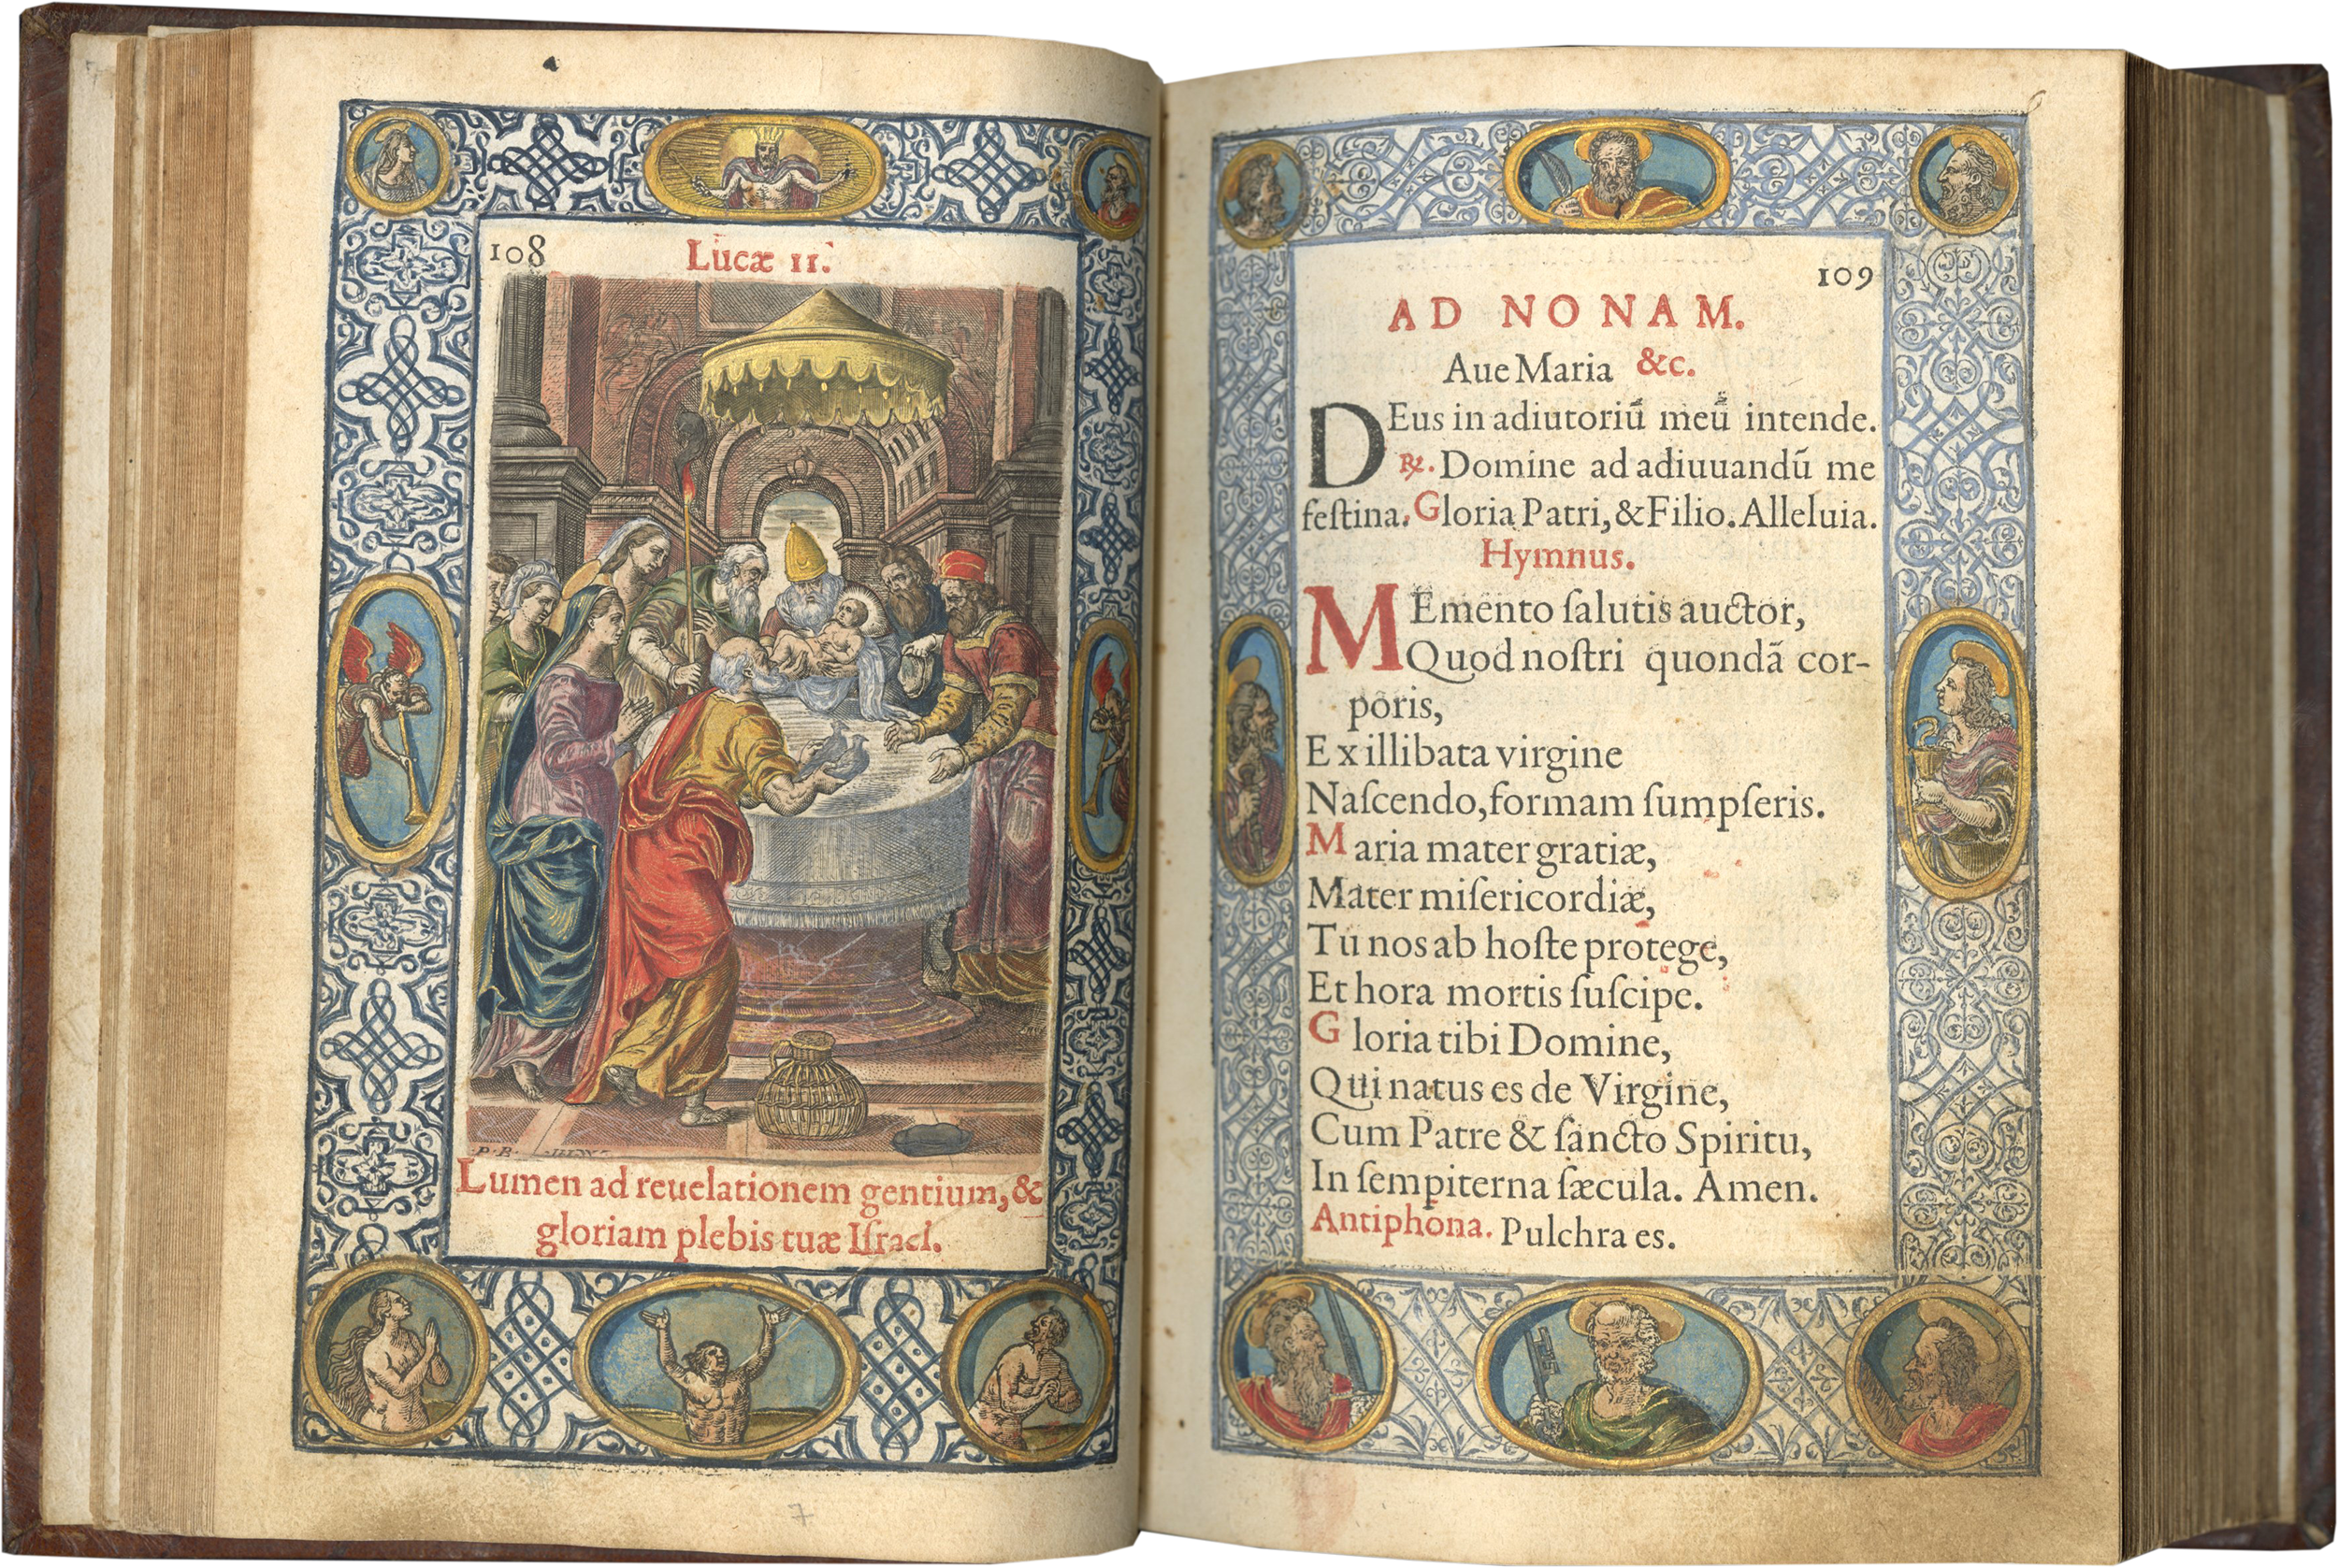 108
Lucæ II.
P. B.
Lumen ad reuelationem gentium, &
gloriam plebis tuæ Iſrael.
7
6
109
AD NONAM.
Aue Maria &c.
DEus in adiutoriū meū intende.
℞. Domine ad adiuuandū me
feſtina. Gloria Patri, & Filio. Alleluia.
Hymnus.
MEmento ſalutis auctor,
Quod noſtri quondā cor-
poris,
Ex illibata virgine
Naſcendo, formam ſumpſeris.
Maria mater gratiæ,
Mater miſericordiæ,
Tu nos ab hoſte protege,
Et hora mortis ſuſcipe.
Gloria tibi Domine,
Qui natus es de Virgine,
Cum Patre & ſancto Spiritu,
In ſempiterna ſæcula. Amen.
Antiphona. Pulchra es.